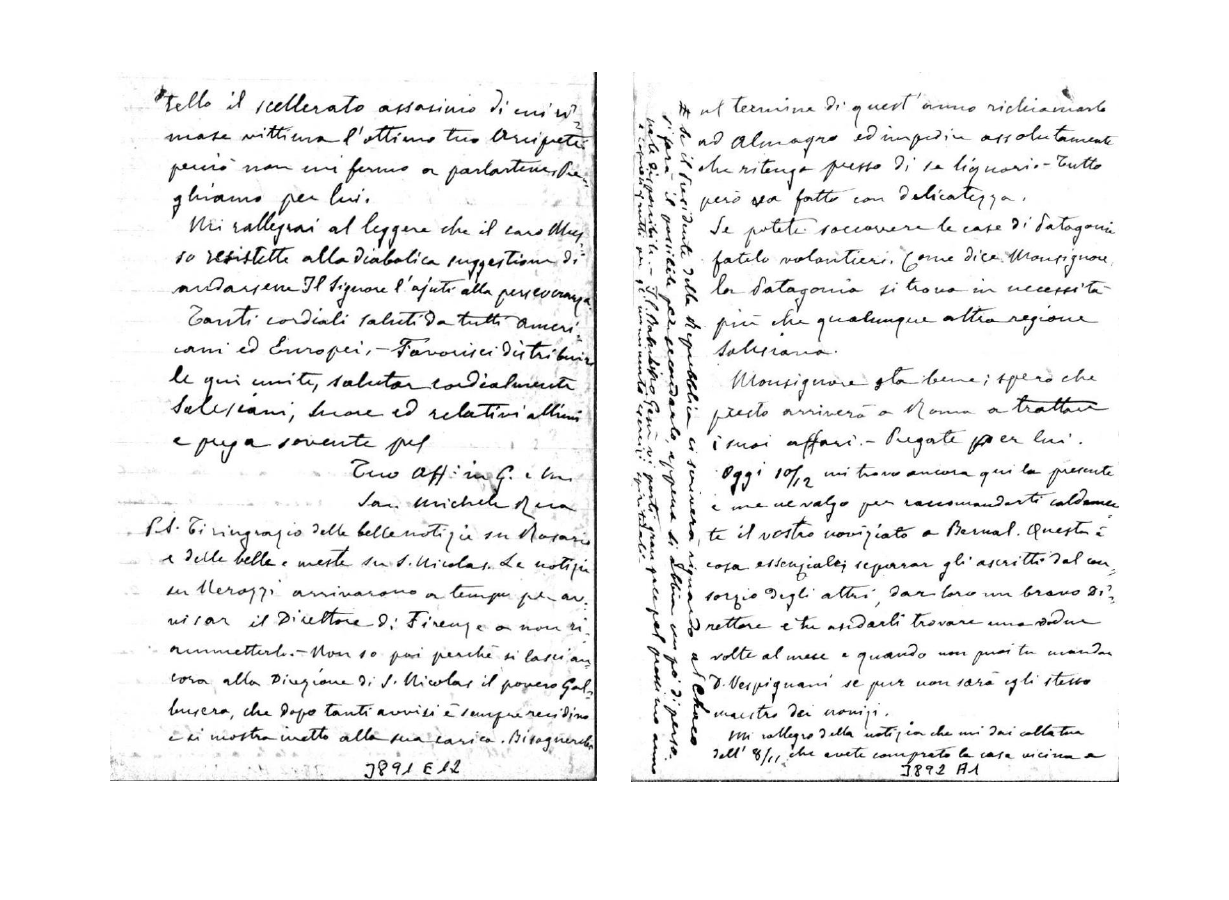 tello il scellerato assasinio di cui ri-
mase vittima l'ottimo tuo Arciprete
perciò non mi fermo a parlartene. Pre-
ghiamo per lui.
Mi rallegrai al leggere che il caro
so resistette alla diabolica suggestione di
andarsene Il Signore l'ajuti alla perseveranza
Tanti cordiali saluti da tutti Ameri-
cani ed Europei. - Favorisci distribuire
le qui unite, salutar cordialmente
Salesiani, Suore ed relativi allievi
e prega sovente pel
Tuo Aff.mo in G. e M.
Sac. Michele Rua
P.S. Ti ringrazio delle belle notizie su Rosario
e delle belle e meste su S. Nicolas. Le notizie
su Merozzi arrivarono a tempo per av-
visar il Direttore di Firenze a non ri-
ammetterlo. - Non so poi perché si lasci an-
cora alla Direzione di S. Nicolas il povero Gal-
busera, che dopo tanti avvisi è sempre recidivo
e si mostra inetto alla sua carica. Bisognerebbe
3891 E12
al termine di quest'anno richiamarlo
ad Almagro ed impedire assolutamente
che ritenga presso di se liquori - Tutto
però sia fatto con delicatezza.
Se potete soccorrere le case di Patagonia
fatelo volontieri. Come dice Monsignore,
la Patagonia si trova in necessità
più che qualunque altra regione
Salesiana.
Monsignore sta bene; spero che
presto arriverà a Roma a trattare
i suoi affari. - Pregate per lui.
Oggi 10/12 mi trovo ancora qui la presente
e me ne valgo per raccomandarti caldamen-
te il vostro noviziato a Bernal. Questa è
cosa essenziale; separar gli ascritti dal con-
sorzio degli altri, dar loro un bravo Di-
rettore e tu andarli trovare una o due
volte al mese e quando non puoi tu mandar
D. Vespignani se pur non sarà egli stesso
maestro dei novizi.
Mi rallegro della notizia che mi dai colla tua
dell' 8/11, che avete comprato la casa vicina a
3892 A1
Se il Presidente della Repubblica ci scriverà riguardo al Chaco
si farà il possibile per secondarlo, appena si abbia un po' di perso-
nale disponibile. - Il Bambino Gesù vi porti grazie pel prossimo anno